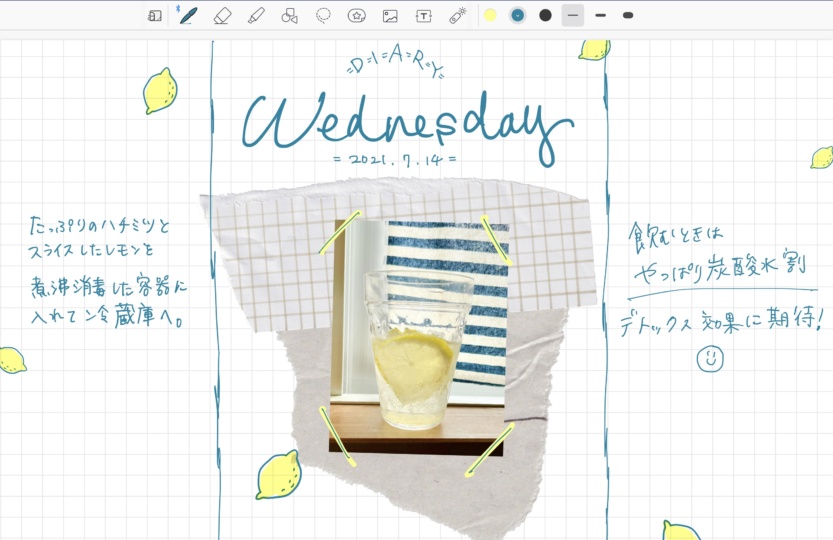 D-I-A-R-Y
Wednesday
= 2021.7.14 =
たっぷりのハチミツと
スライスしたレモンを
煮沸消毒した容器に
入れて冷蔵庫へ。
飲むときは
やっぱり炭酸水割
デトックス効果に期待!